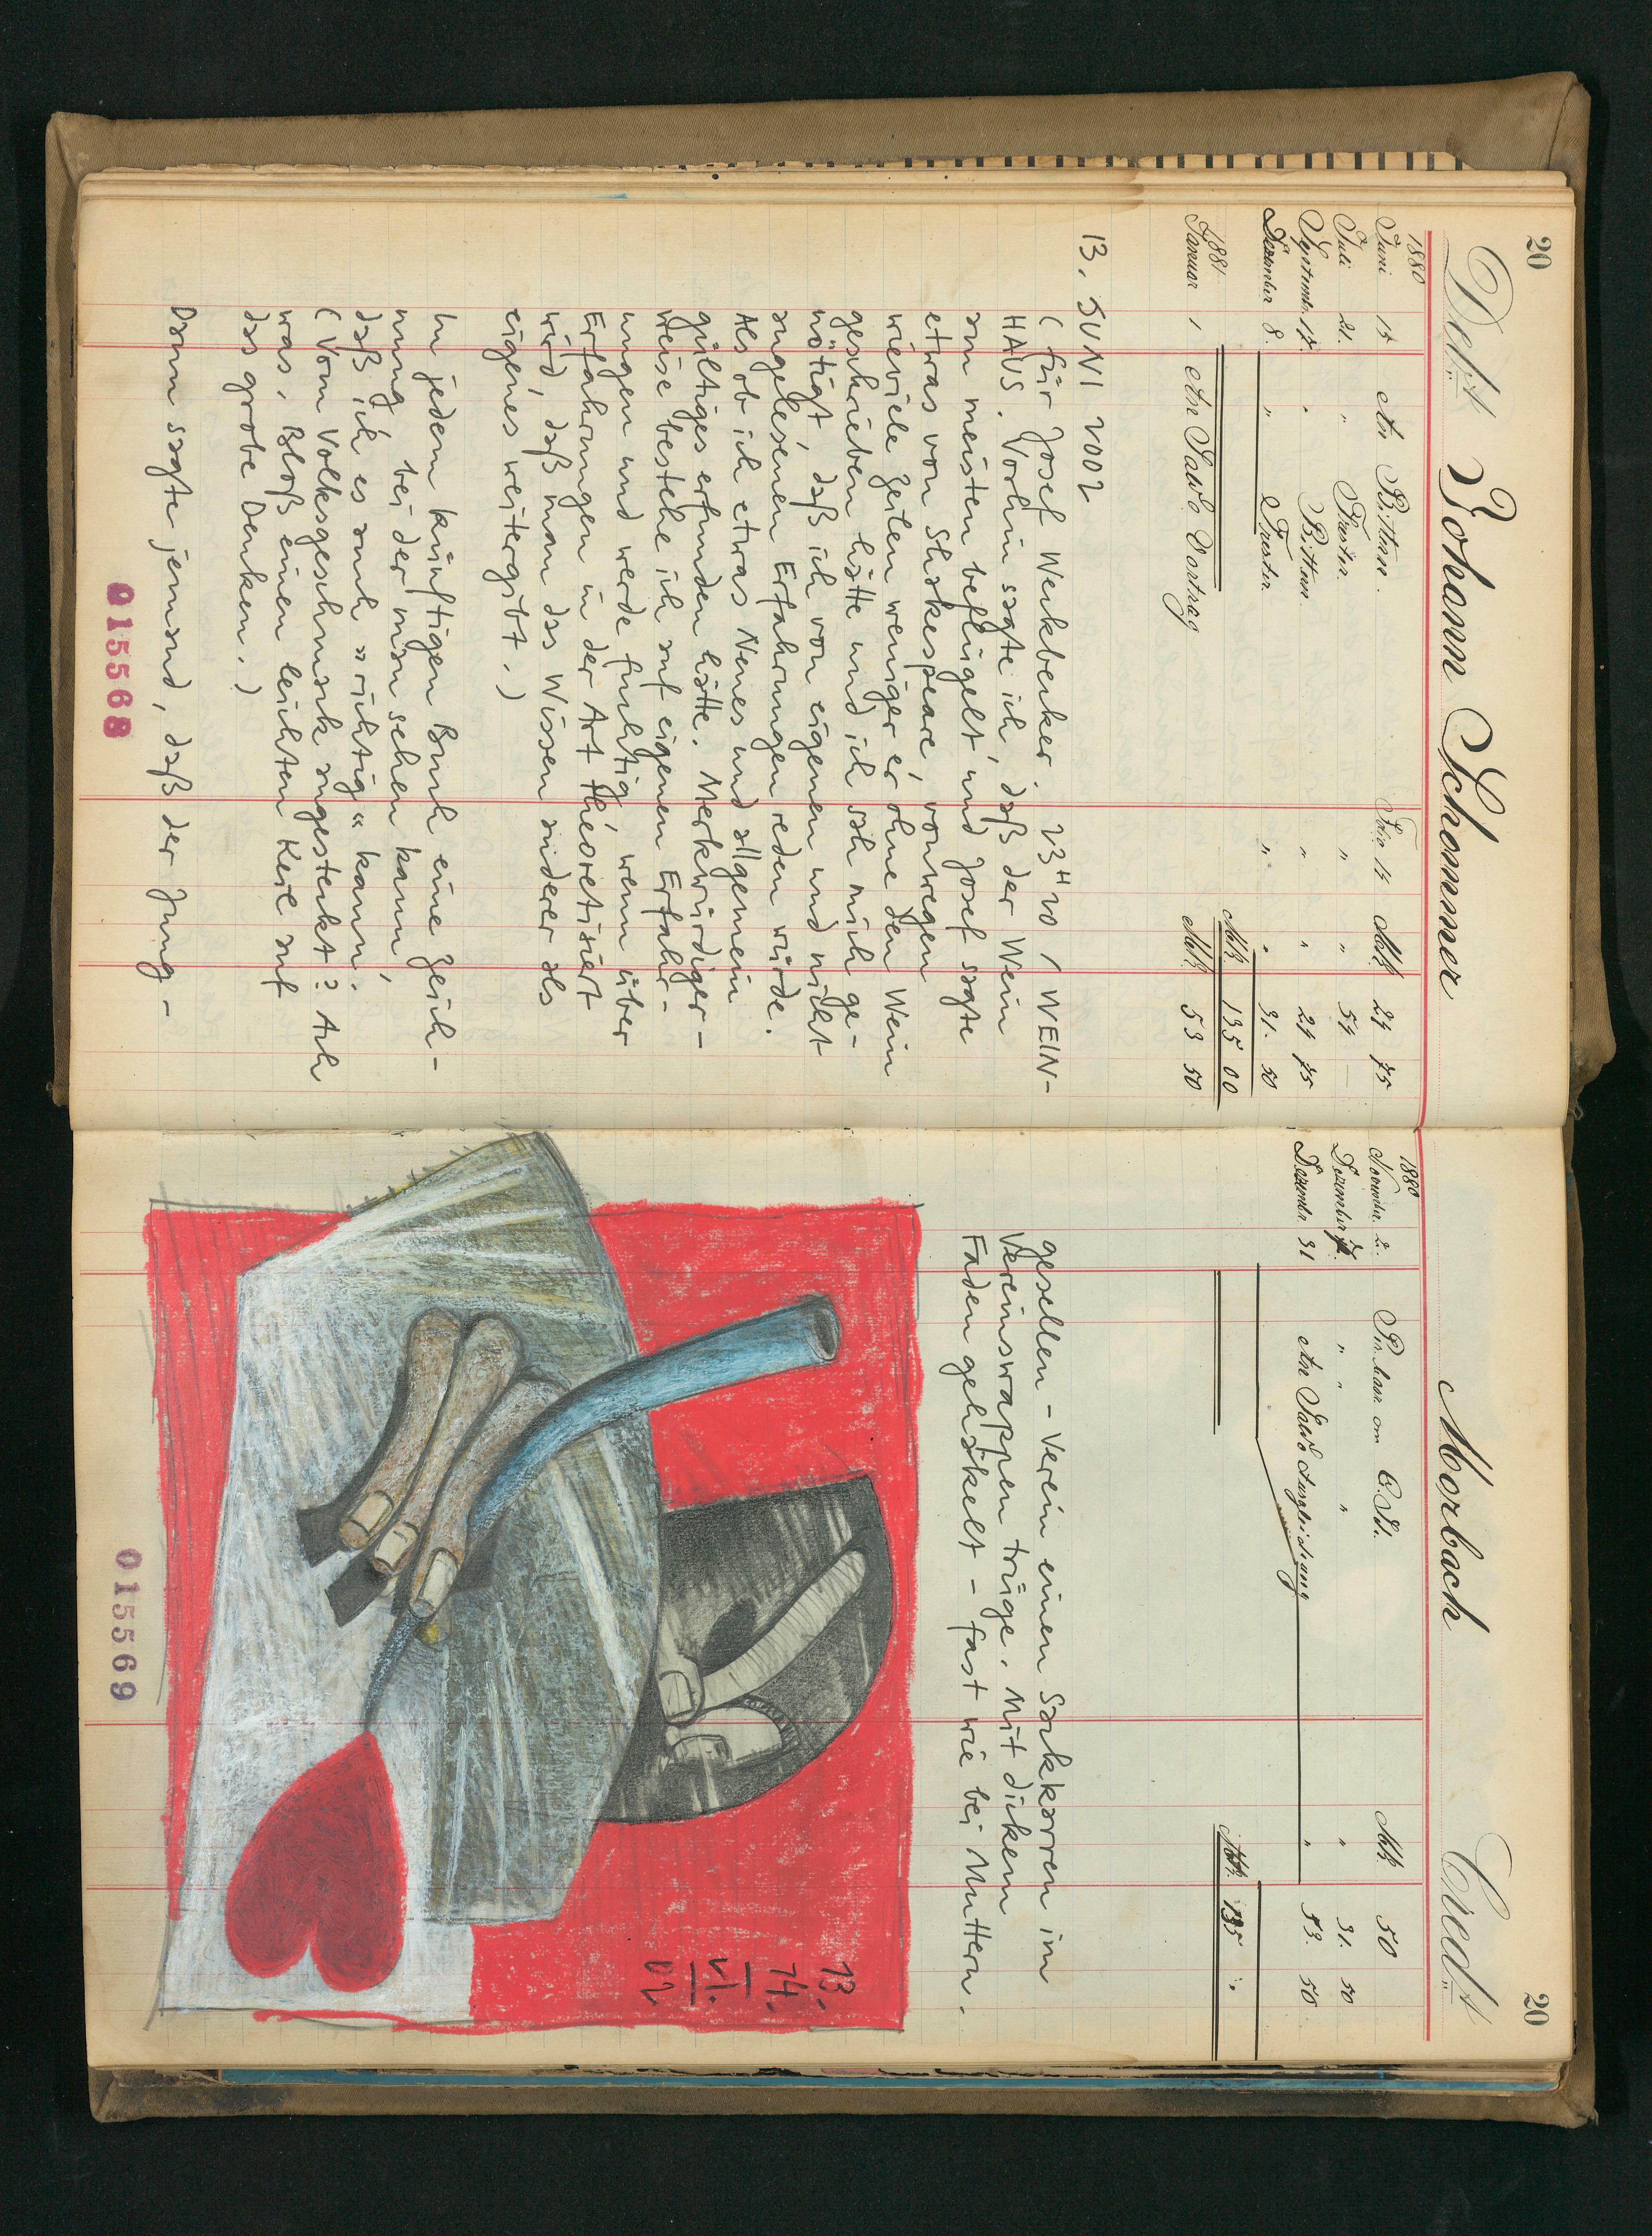 20
Debt
Johann Schommer
1880
Juni 14 An Bitten. Fol. 14 Mk 24 75
Juli 21. " Frester. " " 54 —
September 14. " Bitten. " " 24 75
Dezember 8. " Frester. " " 31. 50
Mk 135 00
1881
Januar 1 An Saldo Vortrag Mk 53 50
13. JUNI 2002
( für Josef Werkberker. 23H20 / WEIN-
HAUS. Vorhin sagte ich, daß der Wein
am meisten beflügelt und Josef sagte
etwas von Shakespeare, vonwegen
wieviele Zeilen weniger er ohne den Wein
geschrieben hätte und ich sah mich ge-
nötigt, daß ich von eigenen und nicht
angelesenen Erfahrungen reden würde.
Als ob ich etwas Neues und allgemein
gültiges erfunden hätte. Merkwürdiger-
weise bestehe ich auf eigenen Erfahr-
ungen und werde fuchtig, wenn über
Erfahrungen in der Art theoretisiert
wird, daß man das Wissen anderer als
eigenes weitergibt.)
In jedem künftigen Buch eine Zeich-
nung bei der man sehen kann,
daß ich es auch » richtig « kann.
( Vom Volksgeschmack angesteckt? Ach
was, Bloß einen leichten Keil auf
das grobe Denken.)
Dann sagte jemand, daß der Jung-
015568
20
Morbach
Credt
1880
November 2. Mk. 50
Dezember " " " " 31. 50
Dezember 31 An Saldo Ausgleichung " 53. 50
Mk. 135 "
gesellen - Verein einen Sackkarren im
Vereinswappen trüge. Mit dickem
Faden gehäkelt - fast wie bei Muttern.
13.
14.
VI.
02
015569